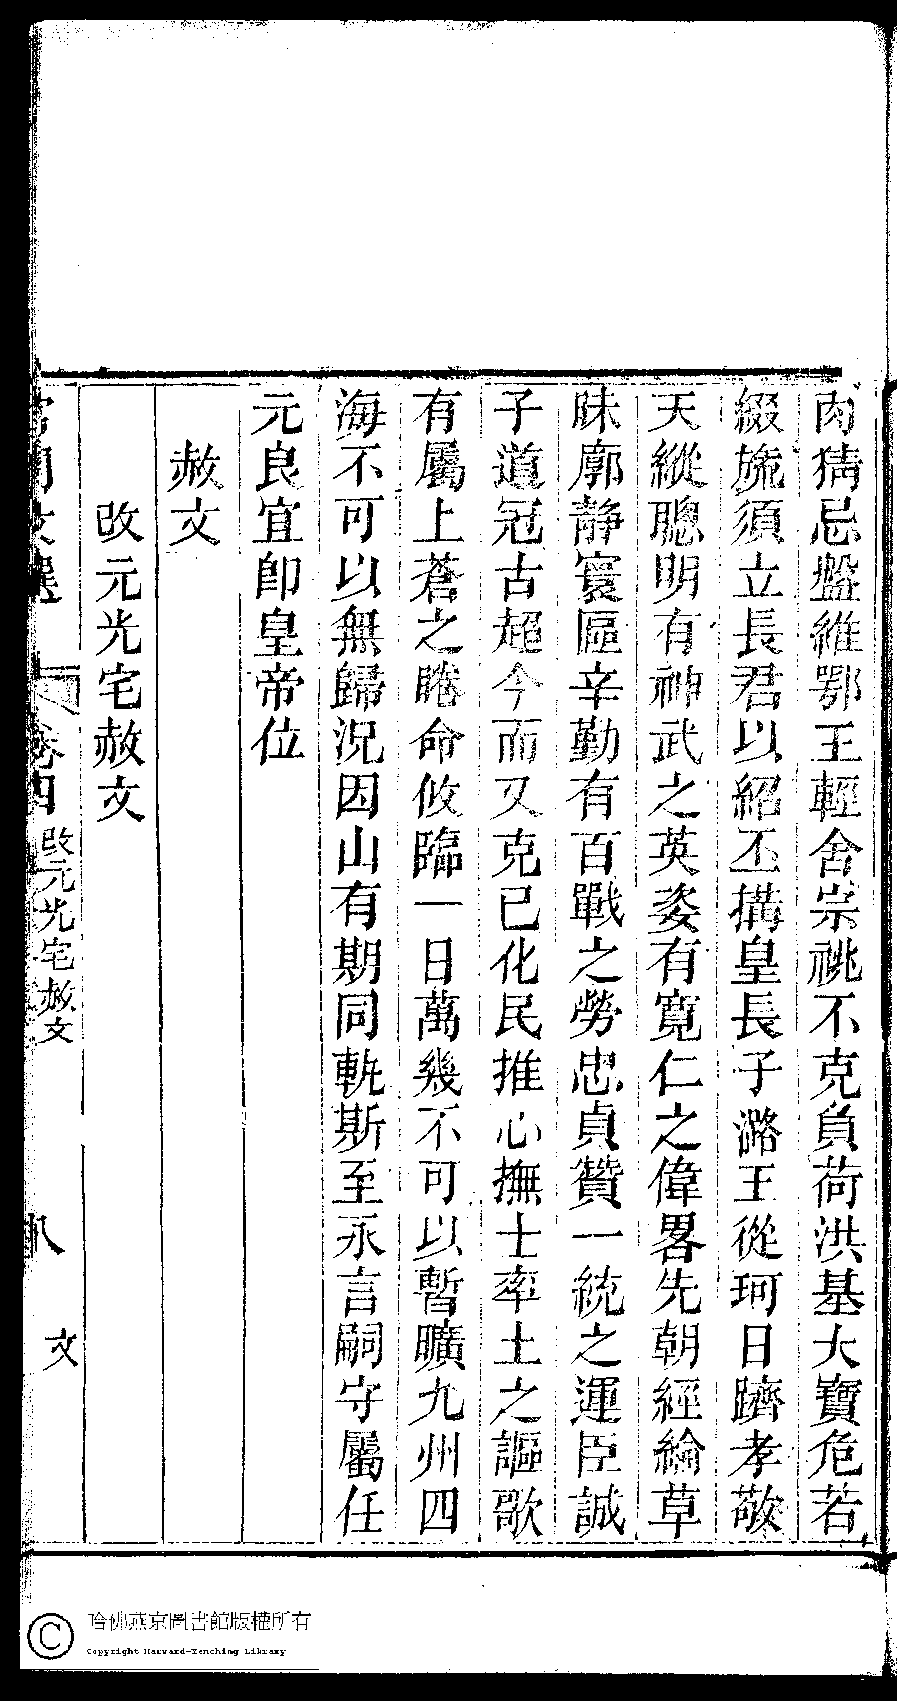 肉猜忌盤維鄂王輕舍宗祧不克負荷洪基大寶危若
綴旒須立長君以紹丕搆皇長子潞王從珂日躋孝敬
天縱聰明有神武之英姿有寬仁之偉畧先朝經綸草
昧廓靜寰區辛勤有百戰之勞忠貞贊一統之運臣誠
子道冠古超今而又克已化民推心撫士率土之謳歌
有屬上蒼之睠命攸臨一日萬幾不可以暫曠九州四
海不可以無歸況因山有期同軌斯至永言嗣守屬任
元良宜即皇帝位
赦文
改元光宅赦文
宮閨文選 卷四 改元光宅赦文 八 文
哈佛燕京圖書館版權所有
Copyright Harvard-Yenching Library